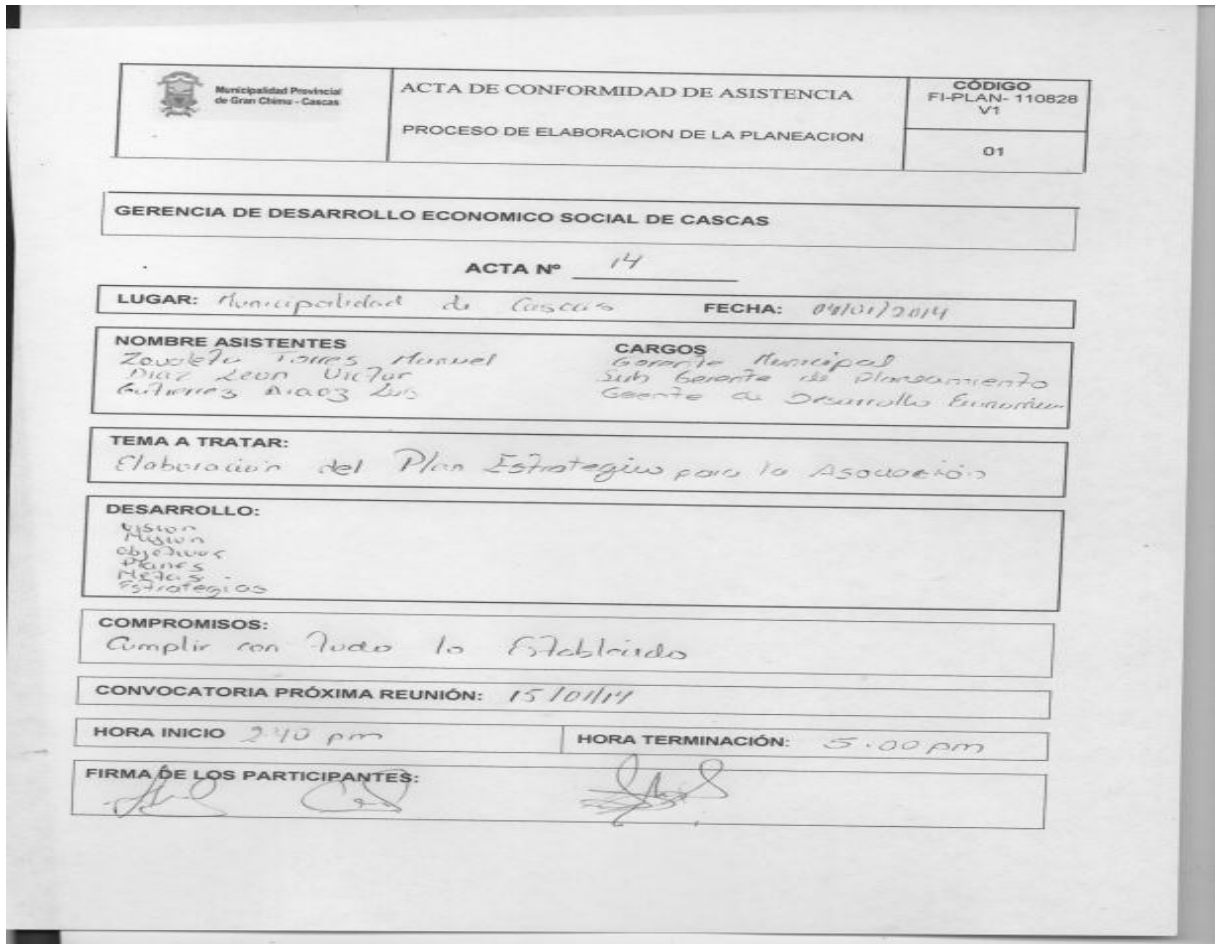 Municipalidad Provincial
de Gran Chimu - Cascas
ACTA DE CONFORMIDAD DE ASISTENCIA
PROCESO DE ELABORACION DE LA PLANEACION
CÓDIGO
FI-PLAN- 110828
V1
01
GERENCIA DE DESARROLLO ECONOMICO SOCIAL DE CASCAS
ACTA Nº 14
LUGAR: Municipalidad de Cascas FECHA: 04/01/2014
NOMBRE ASISTENTES CARGOS
Zavaleta Torres Manuel Gerente Municipal
Diaz Leon Victor Sub Gerente de Planeamiento
Gutierrez Luis Geente de Desarrollo Economico
TEMA A TRATAR:
Elaboración del Plan Estrategico para la Asociación
DESARROLLO:
Vision
Mision
objetivos
Planes
Metas
Estrategias
COMPROMISOS:
Cumplir con todo lo Establecido
CONVOCATORIA PRÓXIMA REUNIÓN: 15/01/14
HORA INICIO 2:40 pm HORA TERMINACIÓN: 5:00 pm
FIRMA DE LOS PARTICIPANTES: